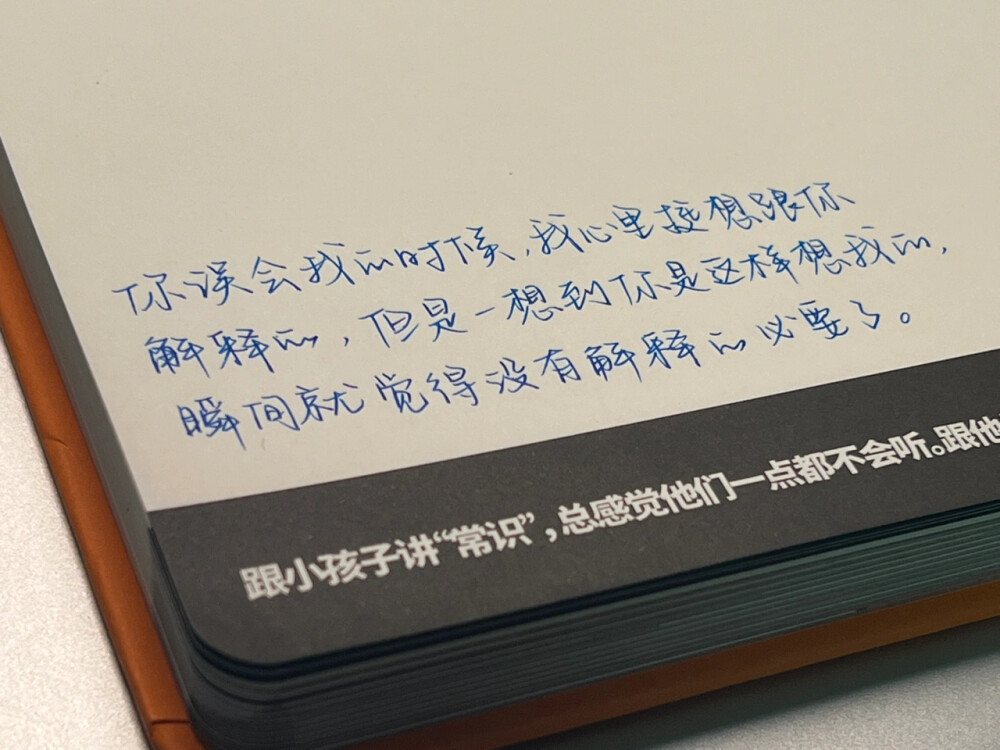 你误会我的时候,我心里挺想跟你
解释的,但是一想到你是这样想我的,
瞬间就觉得没有解释的必要了。
跟小孩子讲“常识”,总感觉他们一点都不会听。跟他